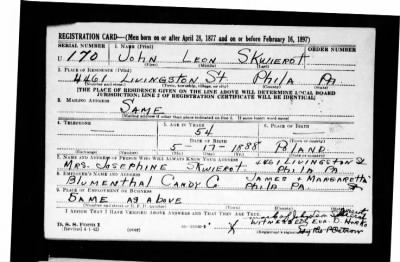 REGISTRATION CARD—(Men born on or after April 28, 1877 and on or before February 16, 1897)
SERIAL NUMBER 1. NAME (Print) ORDER NUMBER
U 170 JOHN LEON SKWIEROT
(First) (Middle) (Last)
2. PLACE OF RESIDENCE (Print)
4461 LIVINGSTON ST PHILA PA
(Number and street) (Town, township, village, or city) (County) (State)
[THE PLACE OF RESIDENCE GIVEN ON THE LINE ABOVE WILL DETERMINE LOCAL BOARD
JURISDICTION; LINE 2 OF REGISTRATION CERTIFICATE WILL BE IDENTICAL]
3. MAILING ADDRESS
SAME
[Mailing address if other than place indicated on line 2. If same insert word same]
4. TELEPHONE 5. AGE IN YEARS 6. PLACE OF BIRTH
54
DATE OF BIRTH
5 - 17 - 1888 POLAND
7. NAME AND ADDRESS OF PERSON WHO WILL ALWAYS KNOW YOUR ADDRESS 4461 LIVINGSTON ST
MRS. JOSEPHINE SKWIEROT PHILA PA
8. EMPLOYER'S NAME AND ADDRESS JAMES & MARGARETTA
BLUMENTHAL CANDY CO PHILA PA. ST
9. PLACE OF EMPLOYMENT OR BUSINESS
SAME AS ABOVE
I AFFIRM THAT I HAVE VERIFIED ABOVE ANSWERS AND THAT THEY ARE TRUE.
D. S. S. Form 1
(Revised 4-1-42) (over) X
WITNESSED BY EVA D.